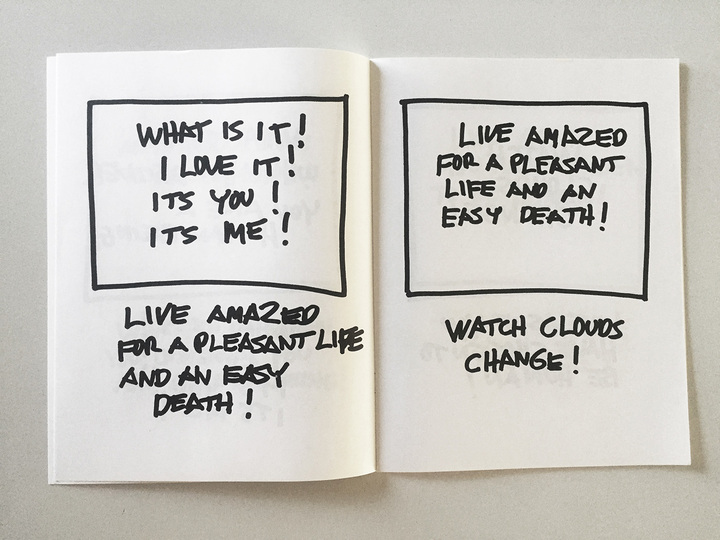 WHAT IS IT!
I LOVE IT!
ITS YOU!
ITS ME!
LIVE AMAZED
FOR A PLEASANT LIFE
AND AN EASY
DEATH!
LIVE AMAZED
FOR A PLEASANT
LIFE AND AN
EASY DEATH!
WATCH CLOUDS
CHANGE!